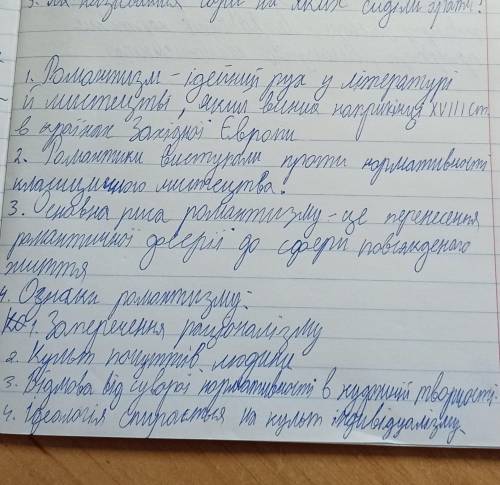 3. Як називалися на яких сиділи грати?
1. Романтизм – ідейний рух у літературі
й мистецтві, який виник наприкінці XVIII ст.
в країнах Західної Європи
2. Романтики виступали проти нормативності
класицичного мистецтва.
3. Основна риса романтизму – це перенесення
романтичної до сфери повсякденого
життя
4. Ознаки романтизму:
1. Заперечення раціоналізму
2. Культ почуттів людини
3. Відмова від суворої нормативності в художній творчості.
4. Ідеологія спирається на культ індивідуалізму